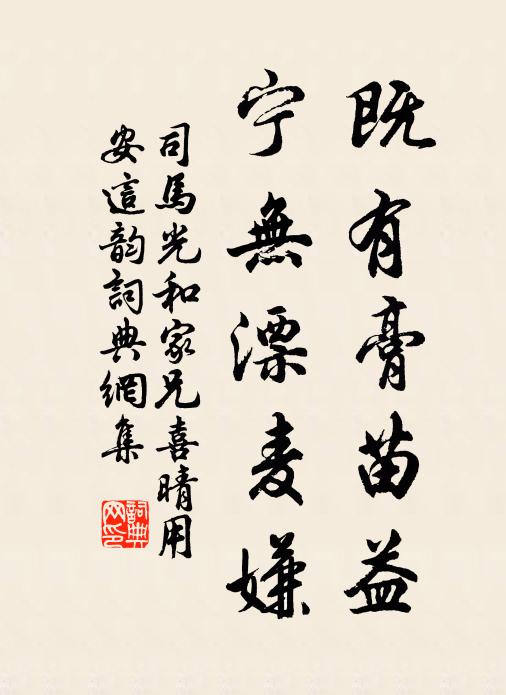 既有膏苗益
宁無漂麦嫌
司馬光和家兄喜晴用
安這韵詞典網集
詞典
网印